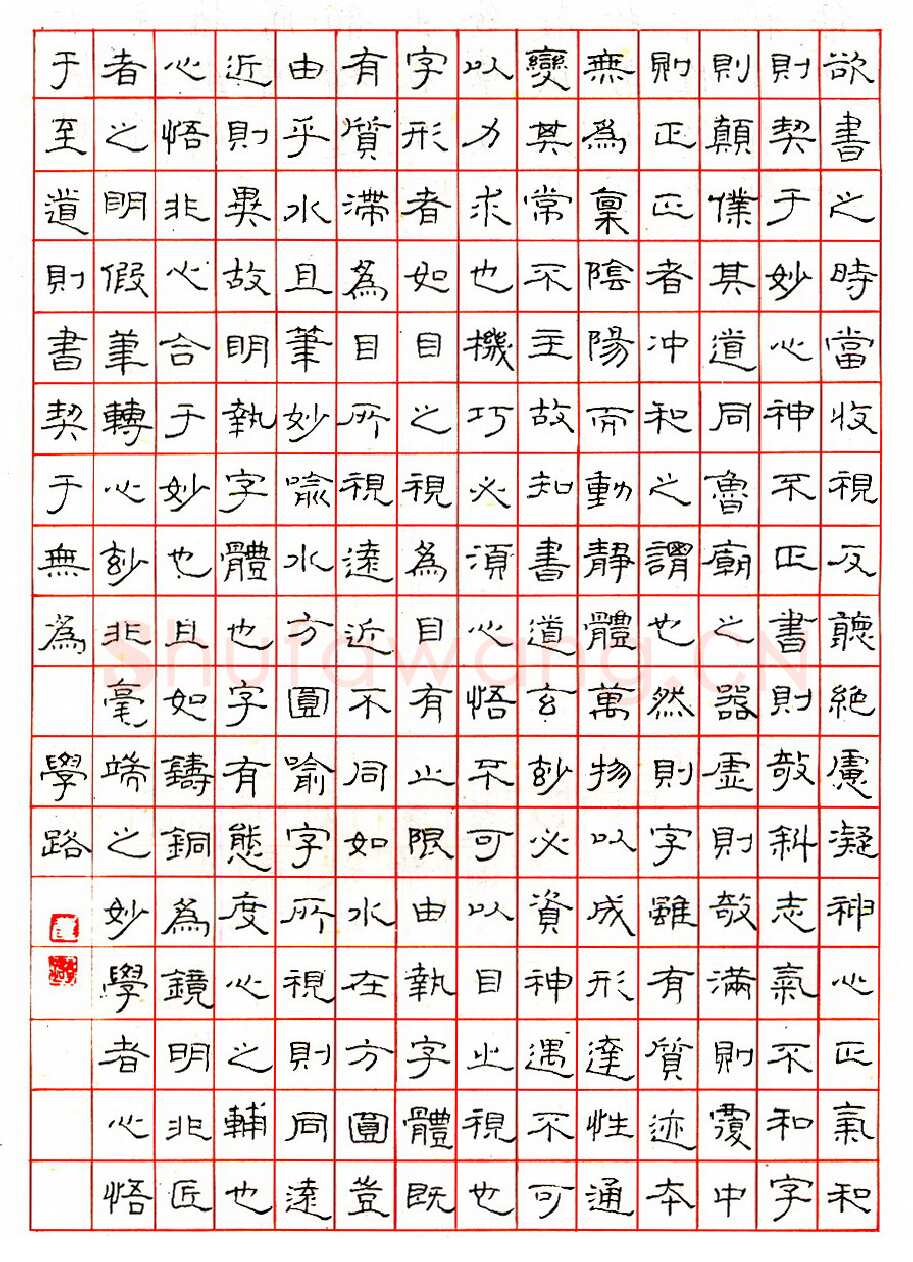 欲書之時當收視反聽絕慮凝神心正氣和
則契于妙心神不正書則攲斜志氣不和字
則顛僕其道同魯廟之器虛則攲滿則覆中
則正正者冲和之謂也然則字雖有質迹本
無為稟陰陽而動靜體萬物以成形達性通
變其常不主故知書道玄玅必資神遇不可
以力求也機巧必須心悟不可以目止視也
字形者如目之視為目有止限由執字體既
有質滯為目所視遠近不同如水在方圓豈
由乎水且筆妙喻水方圓喻字所視則同遠
近則異故明執字體也字有態度心之輔也
心悟非心合于妙也且如鑄銅為鏡明非匠
者之明假筆轉心玅非毫端之妙學者心悟
于至道則書契于無為
學路
Shufawang.CN